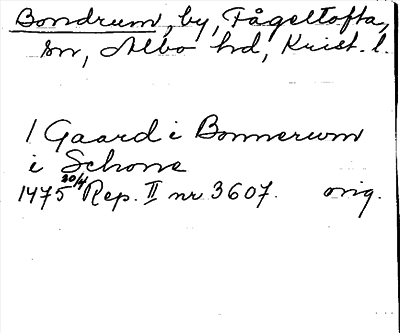 Bondrum, by, Fågeltofta,
sn, Albo hd, Krist. l.
1 Gaard i Bonnerum
i Schone
1475 20/4 Rep. II nr 3607. orig.